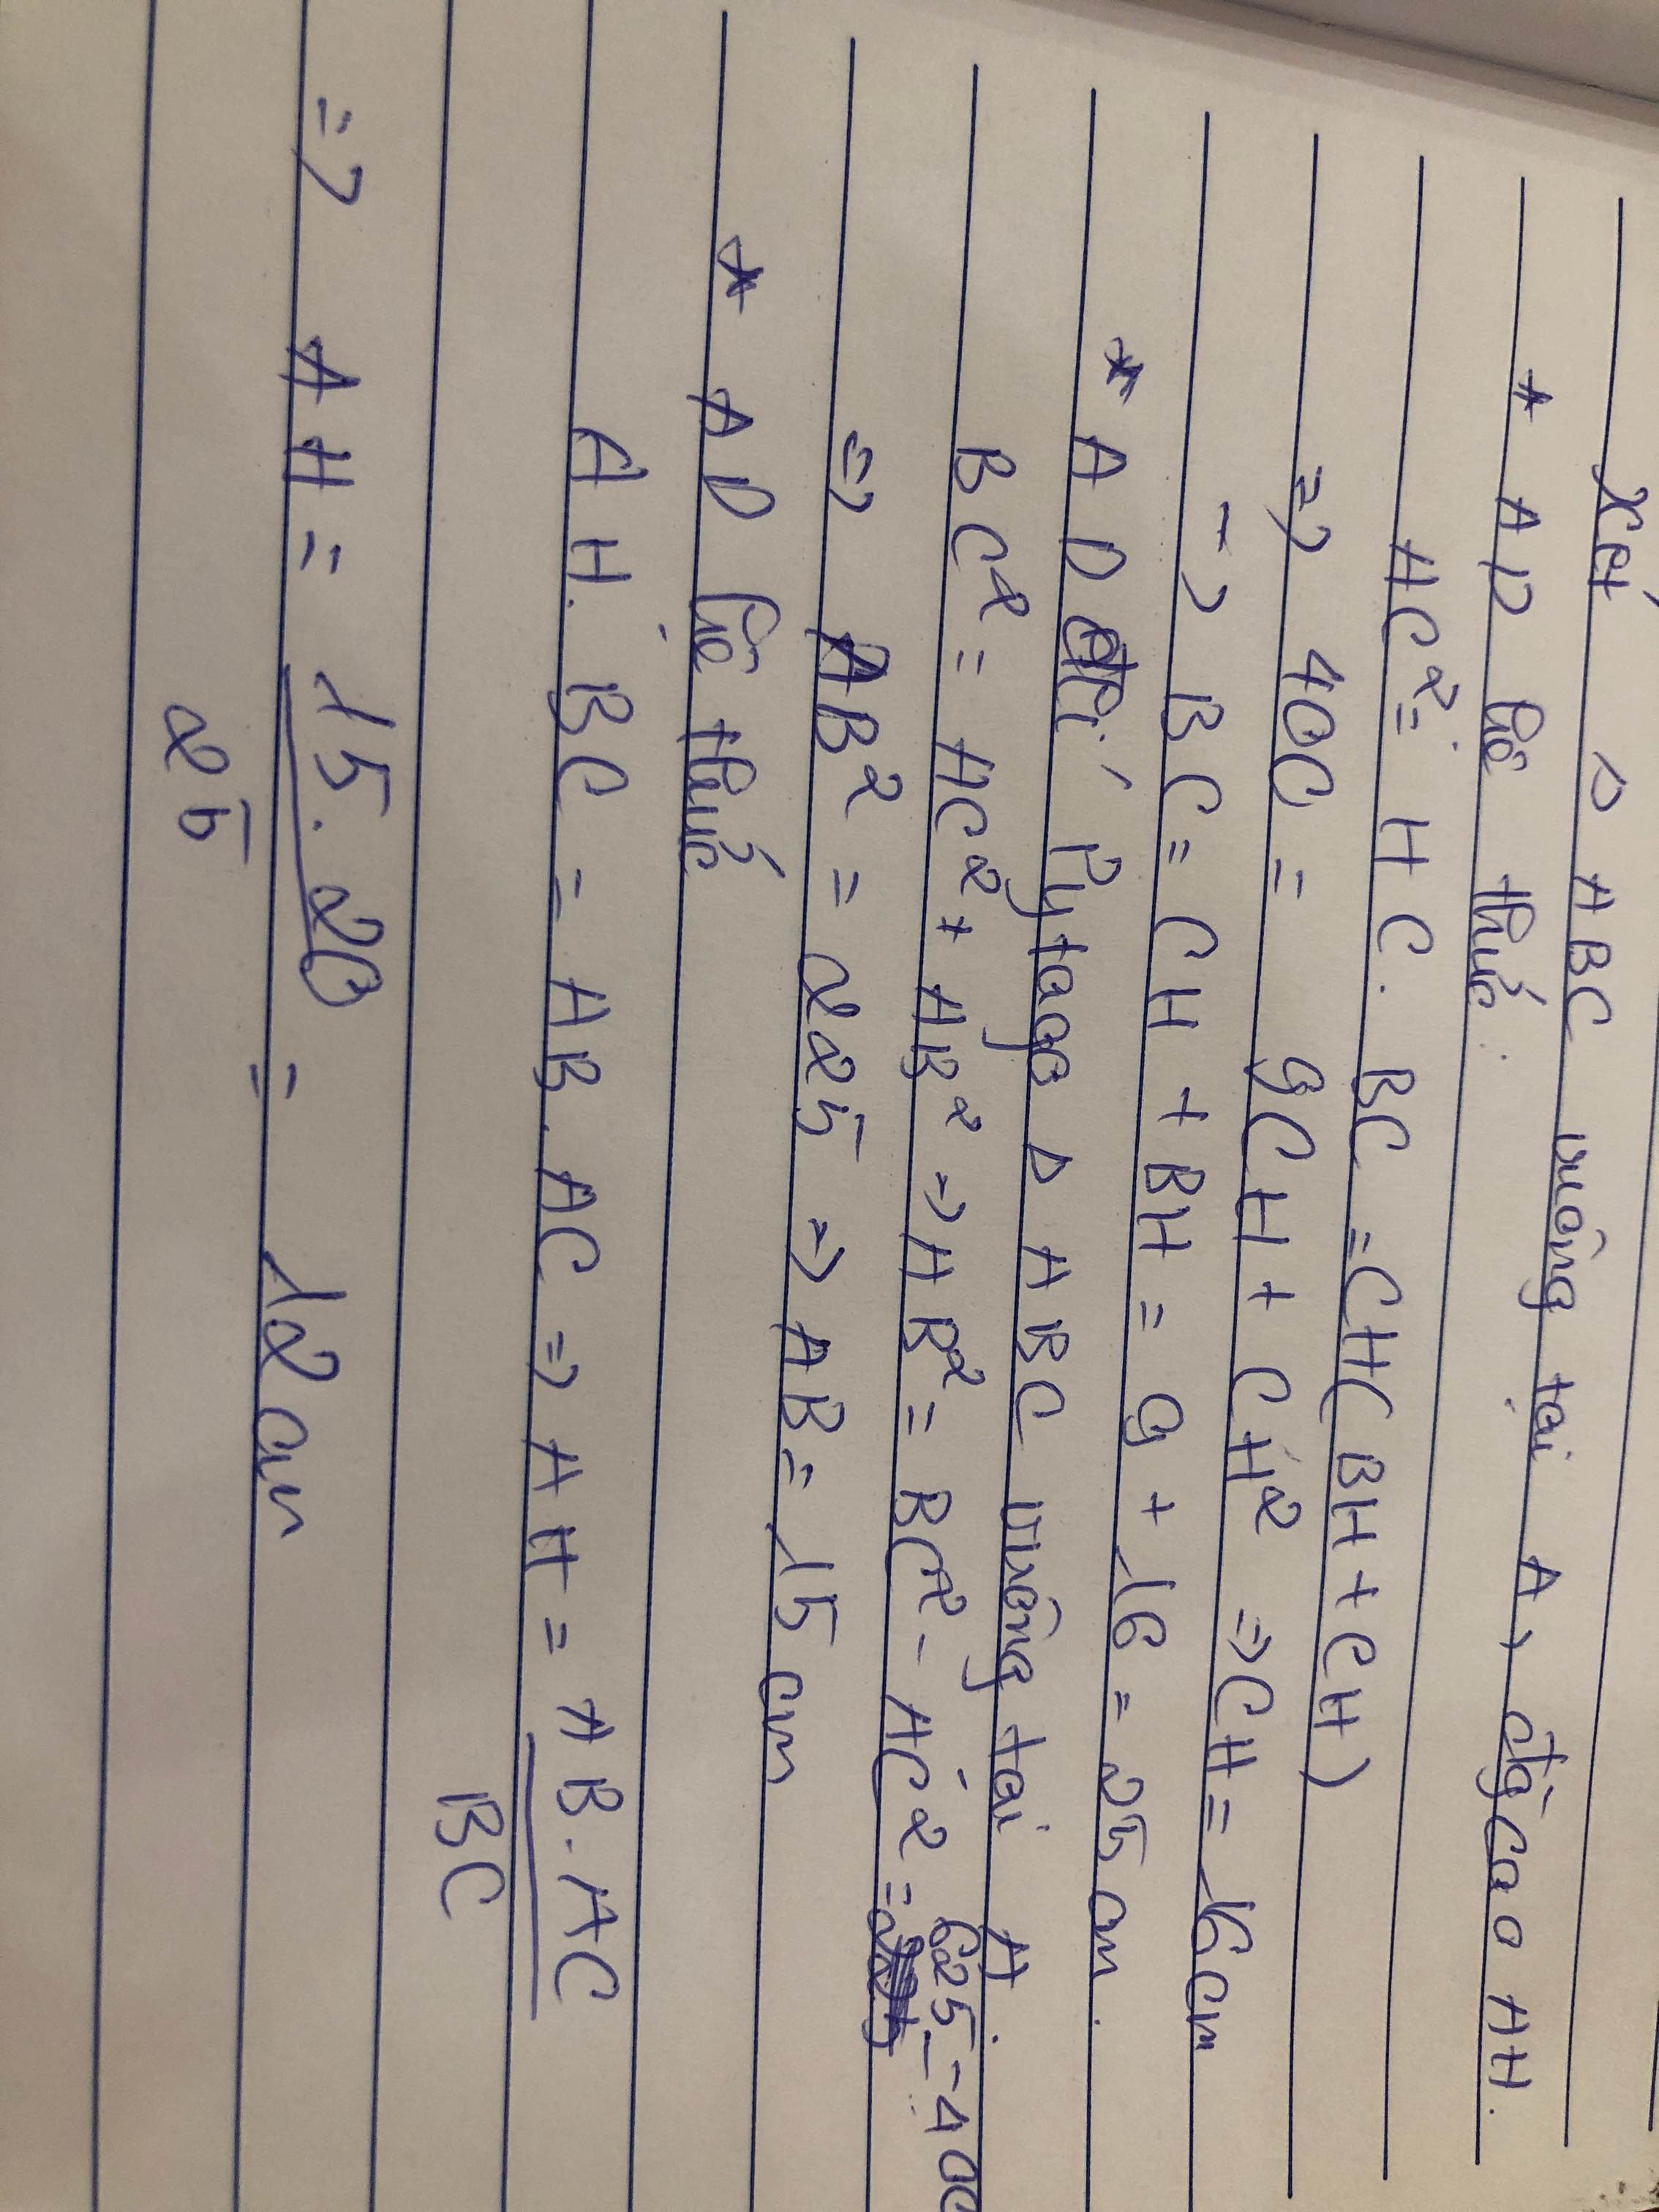 Xét Δ ABC vuông tại A, đg cao AH.
* AD hệ thức:
AC² = HC. BC = CH( BH + CH)
=> 400 = 9CH + CH² => CH = 16cm
=> BC = CH + BH = 9 + 16 = 25 cm.
* AD đlí Pytago Δ ABC vuông tại A
BC² = AC² + AB² => AB² = BC² - AC² = 625 - 400
=> AB² = 225 => AB = 15 cm
* AD hệ thức
AH. BC = AB. AC => AH = AB. AC
BC
=> AH = 15. 20 = 12 cm
25